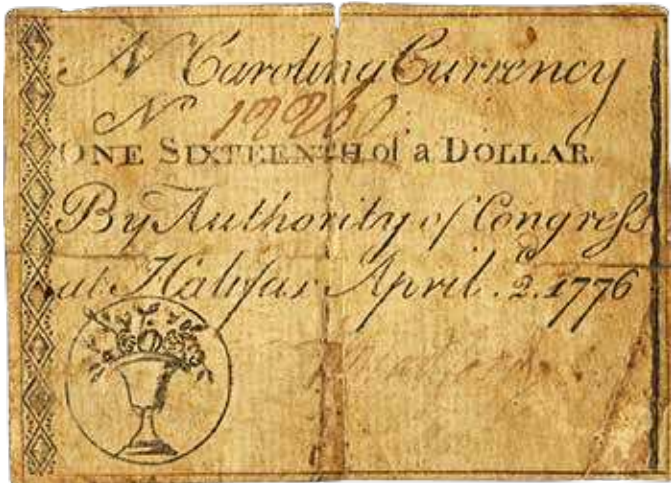 N Carolina Currency
No
ONE SIXTEENTH of a DOLLAR
By Authority of Congress
at Halifax April. 2d. 1776